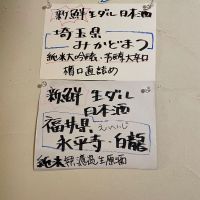 新鮮 生ダル 日本酒
埼玉県
みかどまつ
純米大吟醸・常時大辛口
樽口直詰め
新鮮 生ダル
日本酒
福井県 えいへいじ
永平寺・白龍
純米 無濾過生原酒